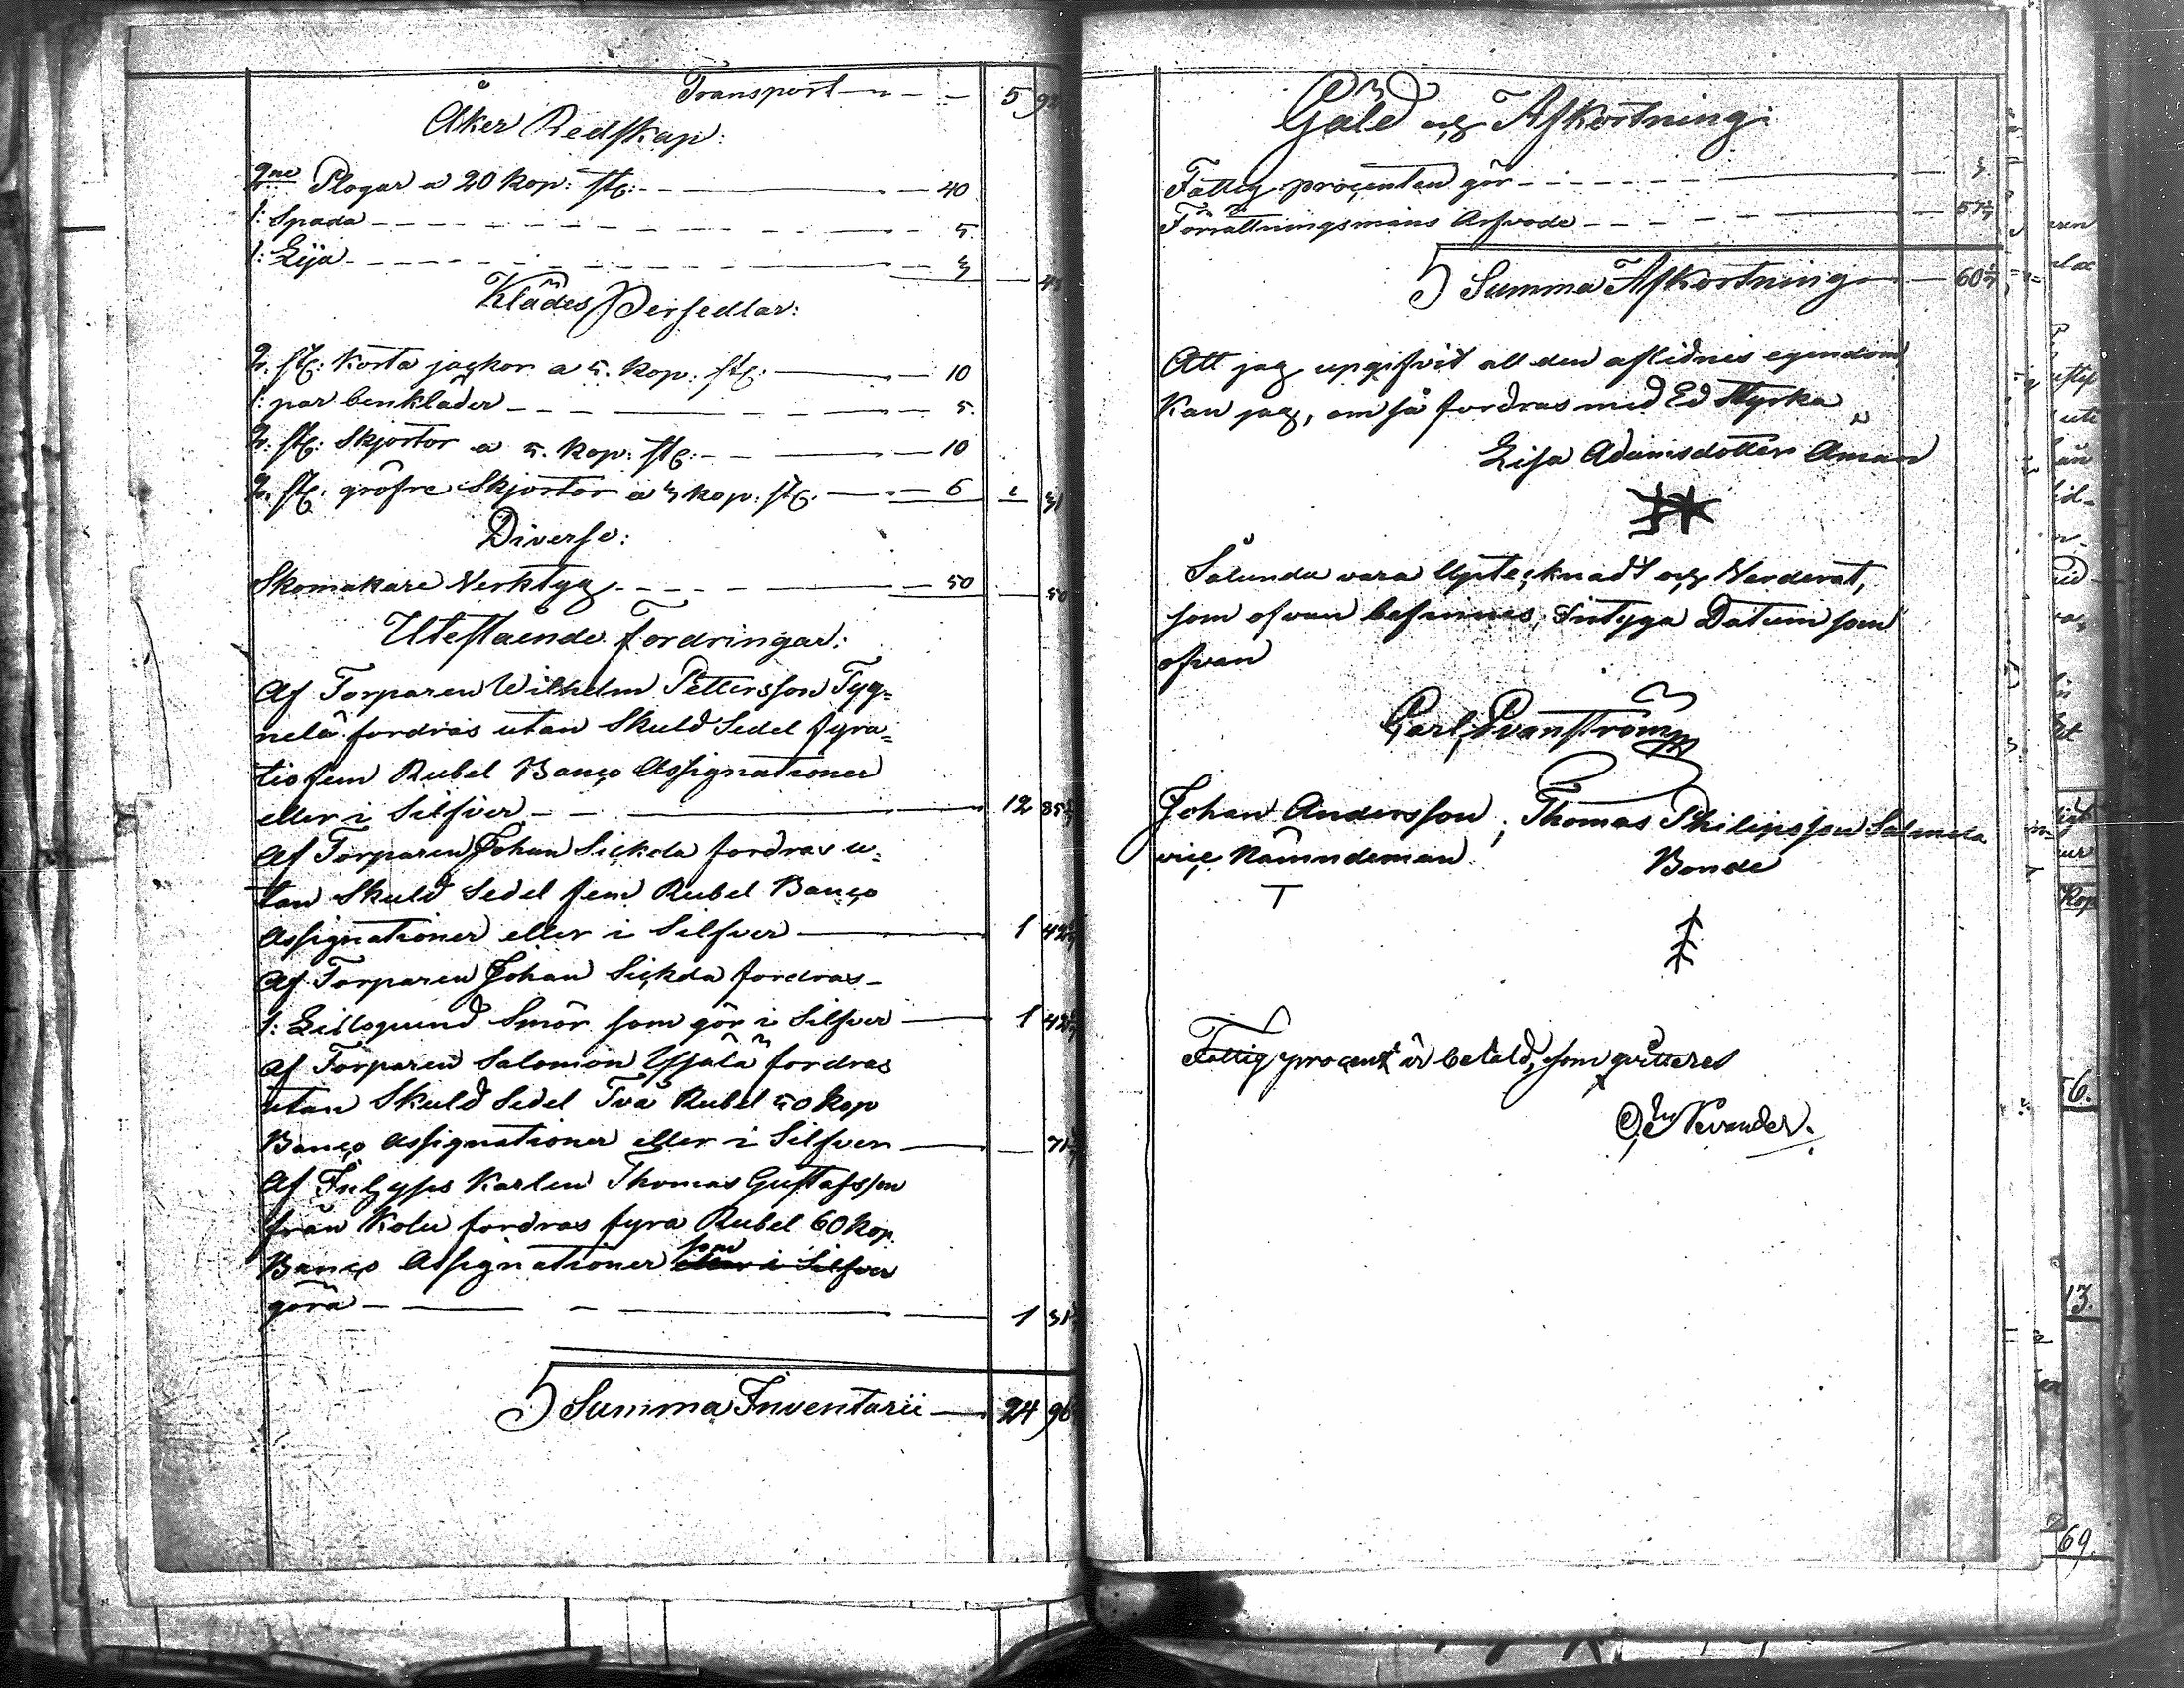 Transport 5
Åker Redskap:
2ne Plogar a 20 kop: st: 40
1: Spada 5.
1: Lija 3
Klädes Persedlar:
2. st: Korta jackor a 5. kop: st: 10
1: par benkläder 5.
2. st: Skjortor a 5. kop: st: 10
2. st: gröfre Skjortor a 3 kop: st: 6 31
Diverse:
Skomakare Verktyg 50 50
Utestående fordringar:
Af Torparen Wilhelm Pettersson Tyy=
nelä fordras utan Skuld Sedel fyra=
tiofem Rubel Banco Assignationer
eller i Silfver 12 85
Af Torparen Johan Sickda fordras u=
tan Skuld Sedel fem Rubel Banco
Assignationer eller i Silfver 1 42
Af Torparen Johan Sickda fordras
1: Lillspund Smör som gör i Silfver 1 42
Af Torparen Salomon fordras
utan Skuld Sedel Två Rubel 50 kop
Banco Assignationer eller i Silfver 71
Af Inhyses Karlen Thomas Gustafsson
från Kolu fordras fyra Rubel 60 kop.
Banco Assignationer som eller i Silfver
göra 1 31
Summa Inventarii 24 96
Gäld och Afkortning:
Fattig procenten gör 3.
Förrättningsmans Arfvode 57
Summa Afkortning 60
Att jag upgifvit all den aflidnes egendom
Kan jag, om så fordras med Ed Styrka
Lisa Adamsdotter Åman
Sålunda vara Uptecknadt och Värderat,
som ofvan befinnes, Intyga Datum som
ofvan
Carl Evanström
Johan Andersson, Thomas Philipsson Salmela
vice Nämndeman Bonde
T
Fattig procent är betald, som qvitteras
Nevander.